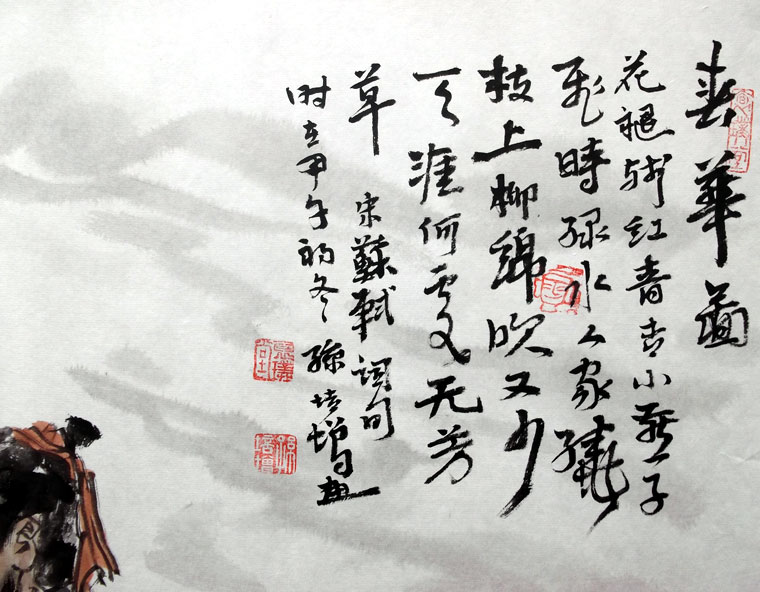 春華圖
花褪残红青杏小燕子
飛時绿水人家繞
枝上柳綿吹又少
天涯何處无芳
草 宋蘇軾词句
时在甲午初冬 孫培增画